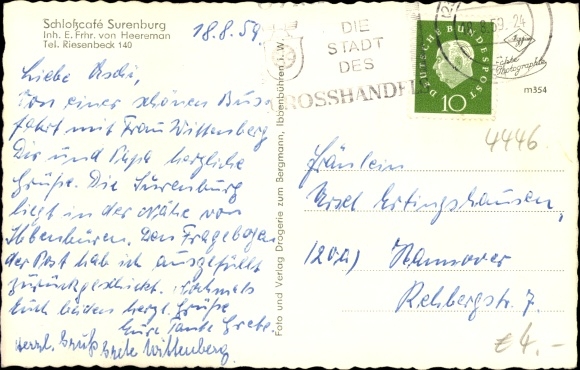 Schloßcafé Surenburg
Inh. E. Frhr. von Heereman
Tel. Riesenbeck 140
18.8.59
Liebe Uschi,
Von einer schönen Bus-
fahrt mit Frau Wittenberg
Dir und Papa herzliche
Grüße. Die Surenburg
liegt in der Nähe von
Ibbenbüren. Den Fragebogen
der Post hab ich ausgefüllt
zurückgeschickt. Nochmals
Euch beiden herzl. Grüße
Eure Tante Grete
herzl. Gruß Grete Wittenberg.
Foto und Verlag Drogerie zum Bergmann, Ibbenbühren i. W.
DIE
STADT
DES
GROSSHANDEL
8.8.59. 24
DEUTSCHE BUNDESPOST
10
Echte Photographie
m354
4446
Fräulein
Ursel Ertingshausen,
(20a) Hannover
Rehbergstr. 7.
€ 4,-